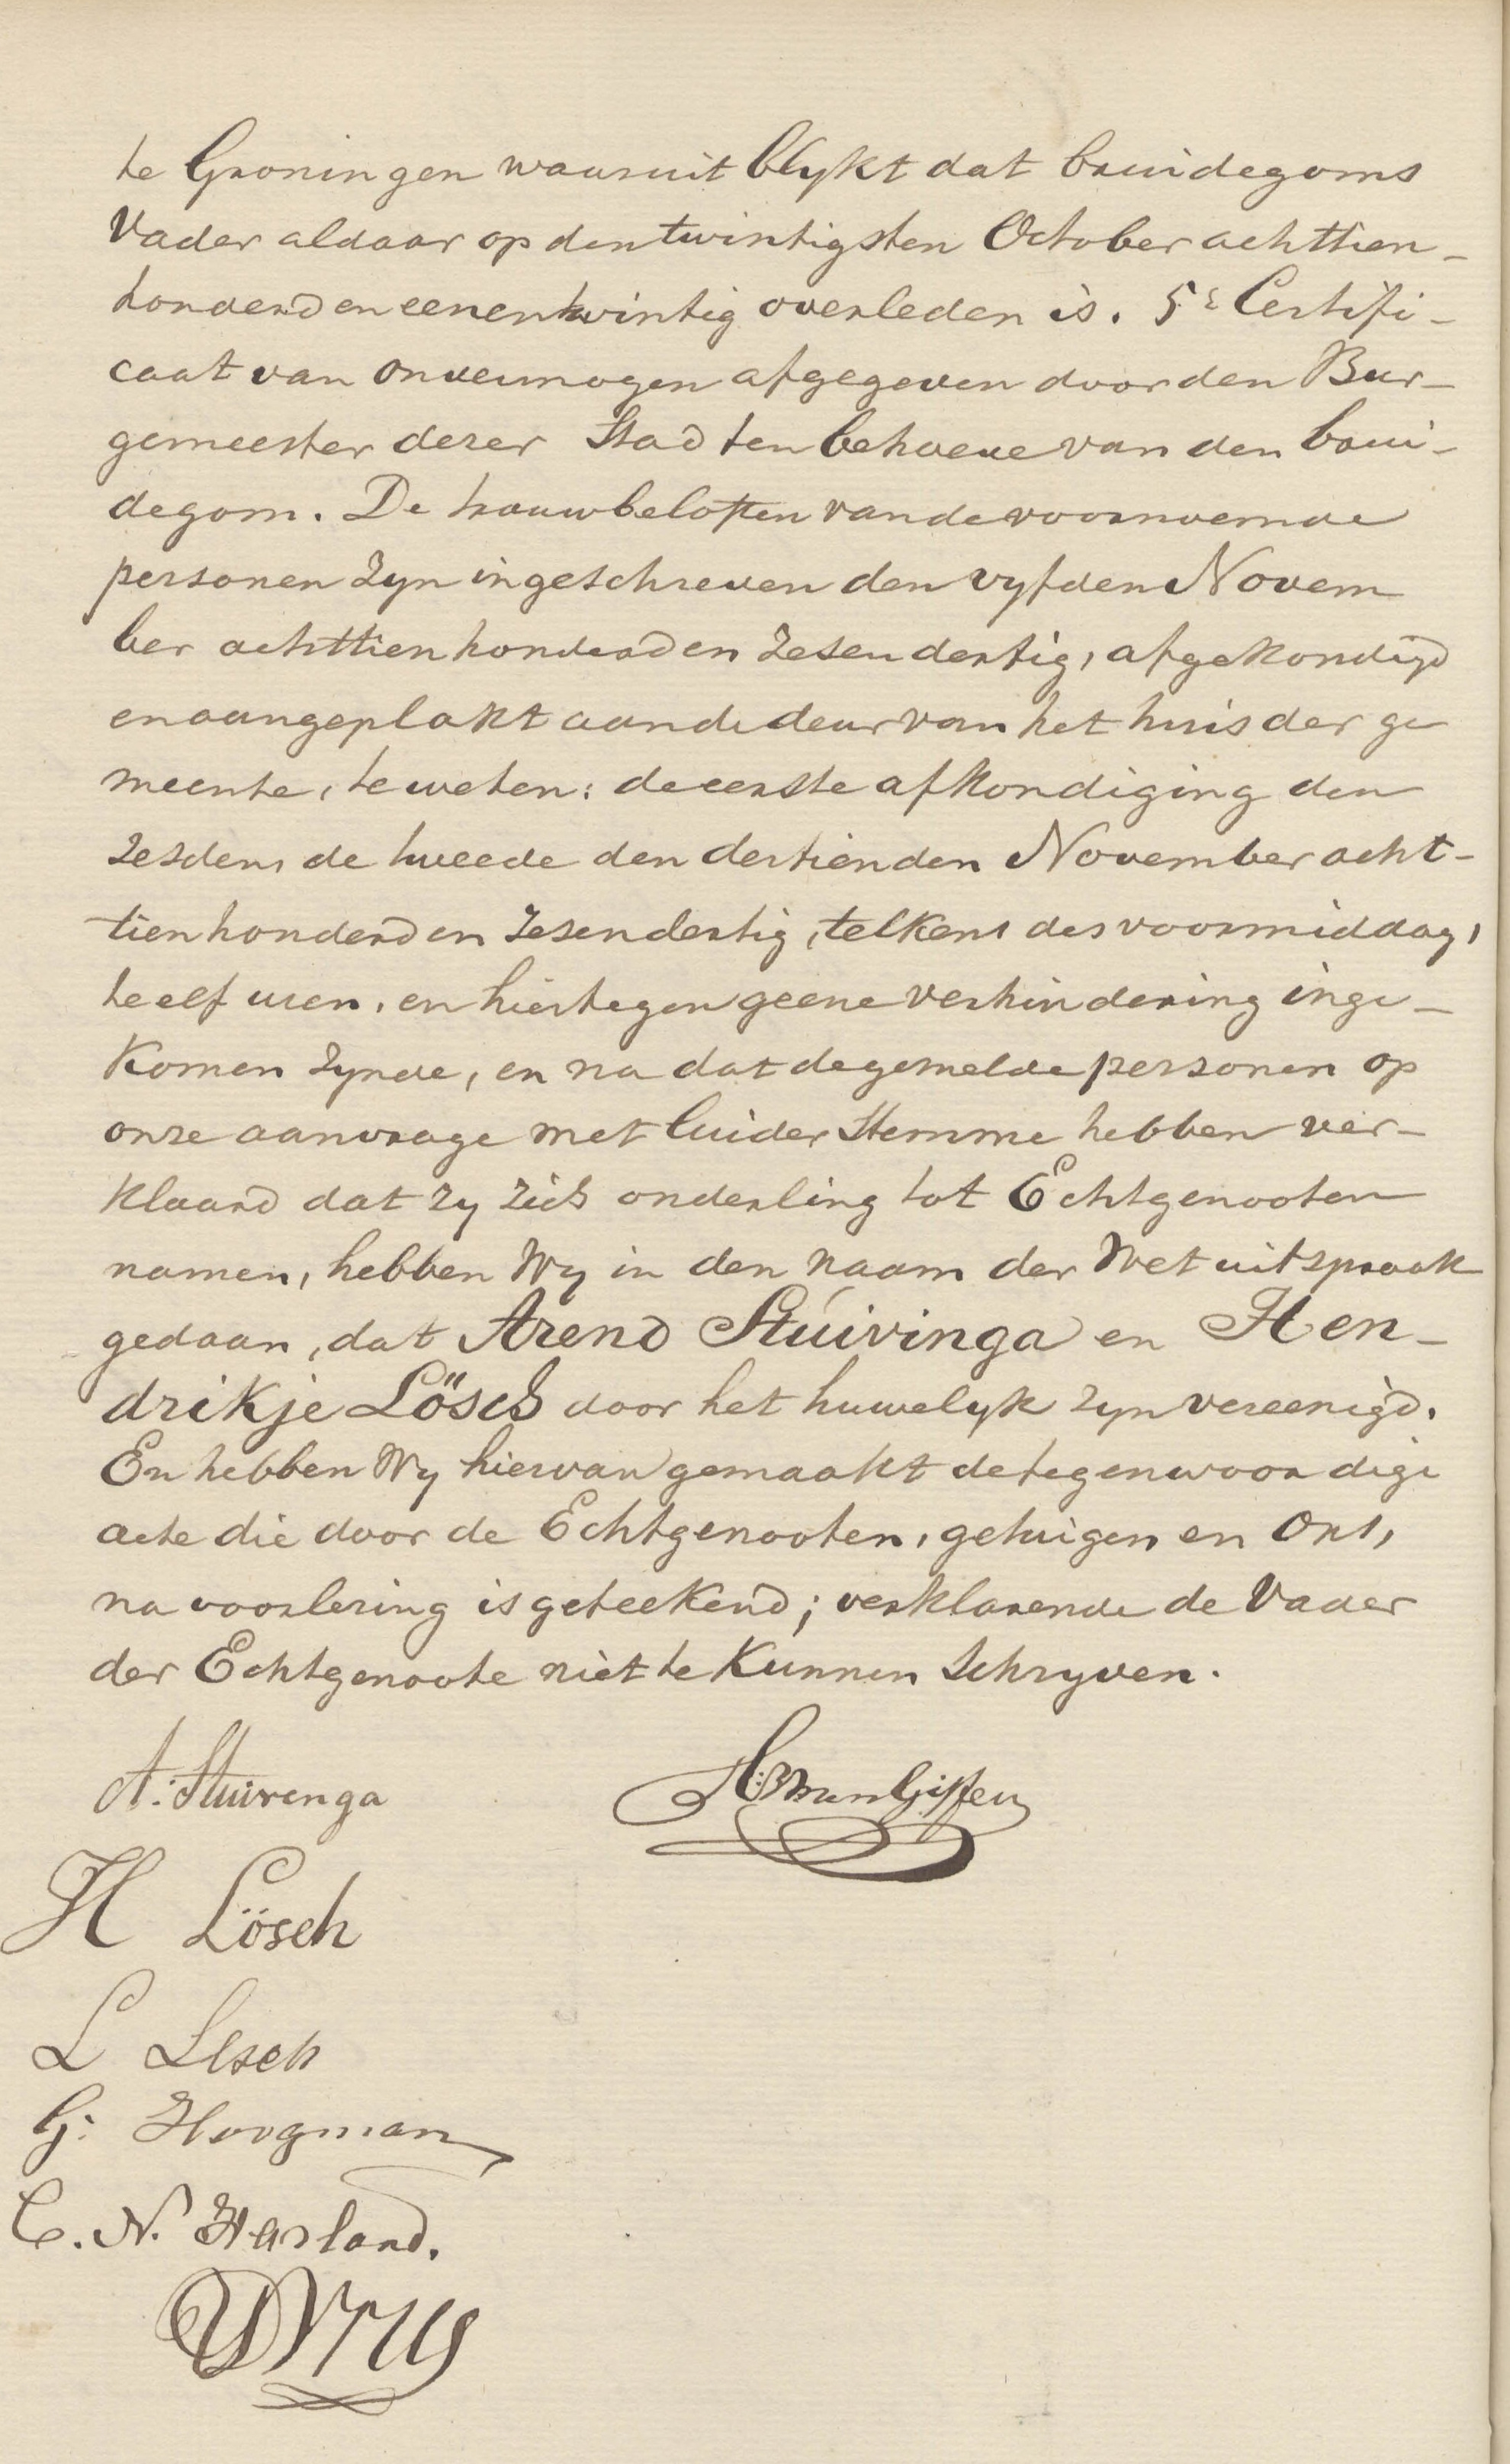 te Groningen waaruit blykt dat bruidegoms
Vader aldaar op den twintigsten October achttien-
honderd en eenentwintig overleden is. 5e Certifi-
caat van onvermogen afgegeven door den Bur-
gemeester dezer Stad ten behoeve van den brui-
degom. De trouwbeloften van de voornoemde
personen zyn ingeschreven den vyfden Novem
ber achttienhonderd en zesendertig, afgekondigd
en aangeplakt aan de deur van het huis der ge
meente, te weten: de eerste afkondiging den
zesden, de tweede den dertienden November acht-
tienhonderd en zesendertig, telkens des voormiddags,
te elf uren, en hiertegen geene verhindering inge-
komen zynde, en na dat de gemelde personen op
onze aanvrage met luider Stemme hebben ver-
klaard dat zy zich onderling tot Echtgenooten
namen, hebben Wy in den naam der Wet uitspraak
gedaan, dat Arend Stuivinga en Hen-
drikje Lösch door het huwelyk zyn vereenigd.
En hebben Wy hiervan gemaakt de tegenwoordige
acte die door de Echtgenooten, getuigen en Ons,
na voorlezing is geteekend; verklarende de Vader
der Echtgenoote niet te kunnen Schryven.
A. Stuivenga
van Giffen
H Lösch
L Lesch
G: Hoogman
C. N. Harland.